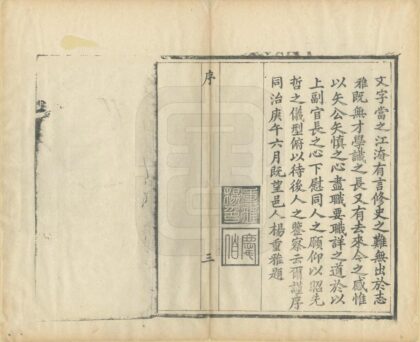 文字當之江海有言修史之難無出於志
雅既無才學識之長又有去來今之感惟
以矢公矢慎之心盡職要職詳之道於以
上副官長之心下慰同人之願仰以昭先
哲之儀型俯以待後人之鑒察云爾謹序
同治庚午六月既望邑人楊重雅題
序
三